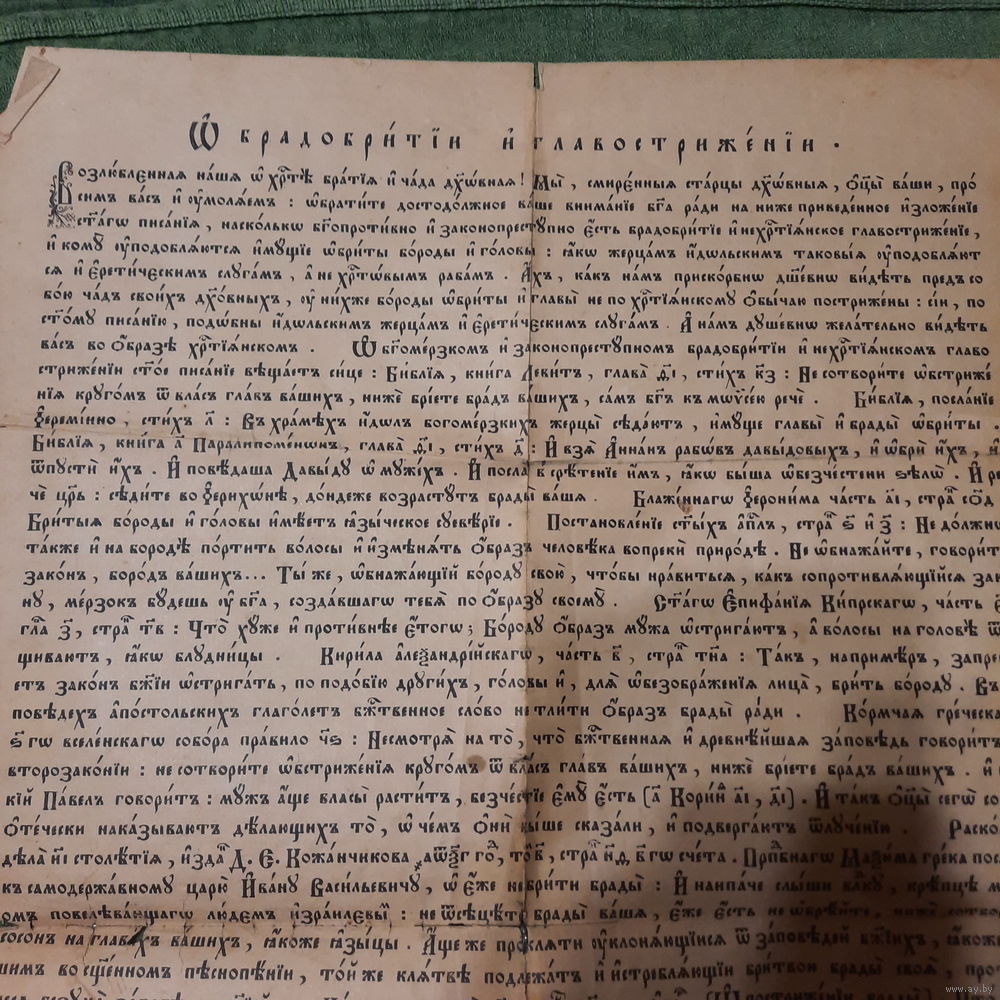 Ѽ брадобри́тїи и҆ главостриже́нїи .
Возлю́бленная на́шя ѡ҆ хр҇тѣ̀ бра́тїя и҆ ча́да дх҃о́вная! Мы̀, смире́нныя ста́рцы дх҃о́вныя, ѻ҆ц҃ы̀ ва́ши, про́
симъ ва́съ и҆ ᲂу҆моля́емъ : ѡ҆брати́те достодо́лжное ва́ше внима́нїе бг҃а ра́ди на ниже приведе́нное и҆зложе́нїе
ст҃а́гѡ писа́нїя, наско́лькѡ бг҃опроти́вно и҆ законопресту́пно є҆́сть брадобри́тїе и҆ нехр҇тїя́нское главостриже́нїе,
и҆ кому̀ ᲂу҆подобля́ются и҆му́щїе ѡ҆бри́ты бо́роды и҆ го́ловы : ꙗ҆́кѡ жерца́мъ и҆́дѡльскимъ таковы́я ᲂу҆подобля́ют
ся и҆ є҆рети́ческимъ слуга́мъ, а҆ не хр҇тѡ́вымъ раба́мъ . А҆́хъ, ка́къ на́мъ приско́рбнѡ дш҃е́внѡ ви́дѣть предъ со
бо́ю ча́дъ свои́хъ дх҃о́вныхъ, ᲂу҆ ни́хже бо́роды ѡ҆бри́ты и҆ главы̀ не по хр҇тїя́нскому ѻ҆бы́чаю пострижены : сі́и, по
ст҃о́му писа́нїю, подо́бны и҆́дѡльскимъ жерца́мъ и҆ є҆рети́ческимъ слуга́мъ . А҆ на́мъ душе́внѡ жела́тельно ви́дѣть
ва́съ во ѻ҆́бразѣ хр҇тїя́нскомъ . Ѽ бг҃оме́рзкомъ и҆ законопресту́пномъ брадобри́тїи и҆ нехр҇тїя́нскомъ главо
стриже́нїи ст҃о́е писа́нїе вѣща́етъ си́це : Би́блїя, кни́га Леви́тъ, глава̀ ѳ҃і, сти́хъ к҃з : Не сотвори́те ѡ҆бстриже́
нїя круго́мъ ѿ вла́съ гла́въ ва́шихъ, нижѐ брі́ете бра́дъ ва́шихъ, са́мъ бг҃ъ къ мѡѷсе́ю речѐ . Би́блїя, посла́нїе
І҆еремі́инно, сти́хъ л҃ : Въ хра́мѣхъ и҆́дѡлъ богоме́рзкихъ жерцы̀ сѣдѧ́тъ, и҆му́ще главы̀ и҆ брады̀ ѡ҆бри́ты .
Би́блїя, кни́га а҃ Паралипоме́нѡнъ, глава̀ ѳ҃і, сти́хъ д҃ : И҆ взя̀ А҆нна́нъ рабѡ́въ давы́довыхъ, и҆ ѡ҆брѝ и҆́хъ,
ѿпустѝ и҆́хъ . И҆ повѣ́даша Давы́ду ѡ҆ муже́хъ . И҆ посла̀ в срѣ́тенїе и҆̀мъ, ꙗ҆́кѡ бы́ша ѡ҆безче́стени ѕѣлѡ̀ . И҆ ре
чѐ цр҃ь : сѣди́те во І҆ерихѡ́нѣ, до́ндеже возрасту́тъ брады̀ ва́шя . Блаже́ннагѡ І҆ерони́ма ча́сть а҃і, стра҇
Бри́тыя бо́роды и҆ го́ловы и҆мѣ́етъ ꙗ҆зы́ческое суевѣ́рїе . Постановле́нїе ст҃ы́хъ а҆п҇лъ, стра҇ ѕ҃ и҆ з҃ : Не должно
та́кже и҆ на бородѣ̀ по́ртить во́лосы и҆ и҆змѣня́ть ѻ҆́бразъ человѣ́ка вопрекѝ приро́дѣ . Не ѡ҆бнажа́йте, говори́т
зако́нъ, боро́дъ ва́шихъ... Ты́ же, ѡ҆бнажа́ющїй бо́роду свою̀, что́бы нра́виться, ка́къ сопротивля́ющїйся зак
ну, ме́рзокъ бу́дешь ᲂу҆ бг҃а, созда́вшагѡ тебя̀ по ѻ҆́бразу своемꙋ̀ . Ст҃а́гѡ Є҆пифа́нїя Ки́прскагѡ, ча́сть
гла҇ з҃, стра҇ т҃в : Что̀ ху́же и҆ проти́внѣе є҆́тогѡ; Бо́роду ѻ҆́бразъ му́жа ѡ҆стрига́ютъ, а҆ во́лосы на головѣ̀ ѿ
щиваютъ, ꙗ҆́кѡ блудни́цы . Кири́ла а҆леѯандрі́йскагѡ, ча́сть в҃, стра҇ тн҃а : Та́къ, наприме́ръ, запре
етъ зако́нъ бж҃їи ѡ҆стрига́ть, по подо́бїю други́хъ, го́ловы и҆, для̀ ѡ҆безображе́нїя лица̀, бри́ть бо́роду . Въ
повѣ́дехъ а҆по́стольскихъ глаго́летъ бж҇твенное сло́во не тли́ти ѻ҆́бразъ брады̀ ра́ди . Ко́рмчая гре́ческа
ѕ҃гѡ вселе́нскагѡ собо́ра пра́вило ч҃ѕ : Несмотря̀ на то̀, что̀ бж҇твенная и҆ древнѣ́йшая за́повѣдь говори́тъ
второзако́нїи : не сотвори́те ѡ҆бстриже́нїя круго́мъ ѿ вла́съ гла́въ ва́шихъ, нижѐ брі́ете бра́дъ ва́шихъ . и҆
кїй Па́велъ говори́тъ : му́жъ а҆́ще власы̀ расти́тъ, безче́стїе є҆мꙋ̀ є҆́сть (а҃ Кори́н҇ а҃і, д҃і) . И҆ та́къ ѻ҆ц҃ы̀ сегѡ̀ со
ѻ҆те́чески нака́зываютъ дѣ́лающихъ то̀, ѡ҆ че́мъ ѻ҆нѝ вы́ше сказа́ли, и҆ подверга́ютъ ѿлуче́нїю . Раско́
дѣла̀ и҃і столѣ́тїя, и҆зда҇ Д. Є. Кожа́нчикова го҇, то҇ в҃, стра҇ в҃гѡ сче́та . Прп҇бнагѡ Маѯи́ма гре́ка пос
къ самодержа́вному царю̀ И҆ва́ну Васи́льевичу, ѡ҆ є҆́же не бри́ти брады̀ : И҆ наипа́че слы́ши влⷣку, крѣ́пце
омъ повелѣва́ющагѡ лю́демъ и҆зра́илевы҇ : не ѿсѣцѣ́те брады̀ ва́шя, є҆́же є҆́сть не ѡ҆брѣ́йте, нижѐ сотво
сосонъ на глава́хъ ва́шихъ, ꙗ҆́коже ꙗ҆зы́цы . А҆́ще же про́кляти ᲂу҆клоня́ющїися ѿ за́повѣдей бж҃їихъ, ꙗ҆́коже
шимъ во сщ҃е́нномъ пѣснопѣ́нїи, то́й же кля́твѣ подлежа́тъ и҆ и҆стребля́ющїи бри́твою брады̀ своя̀,
www.ay.by